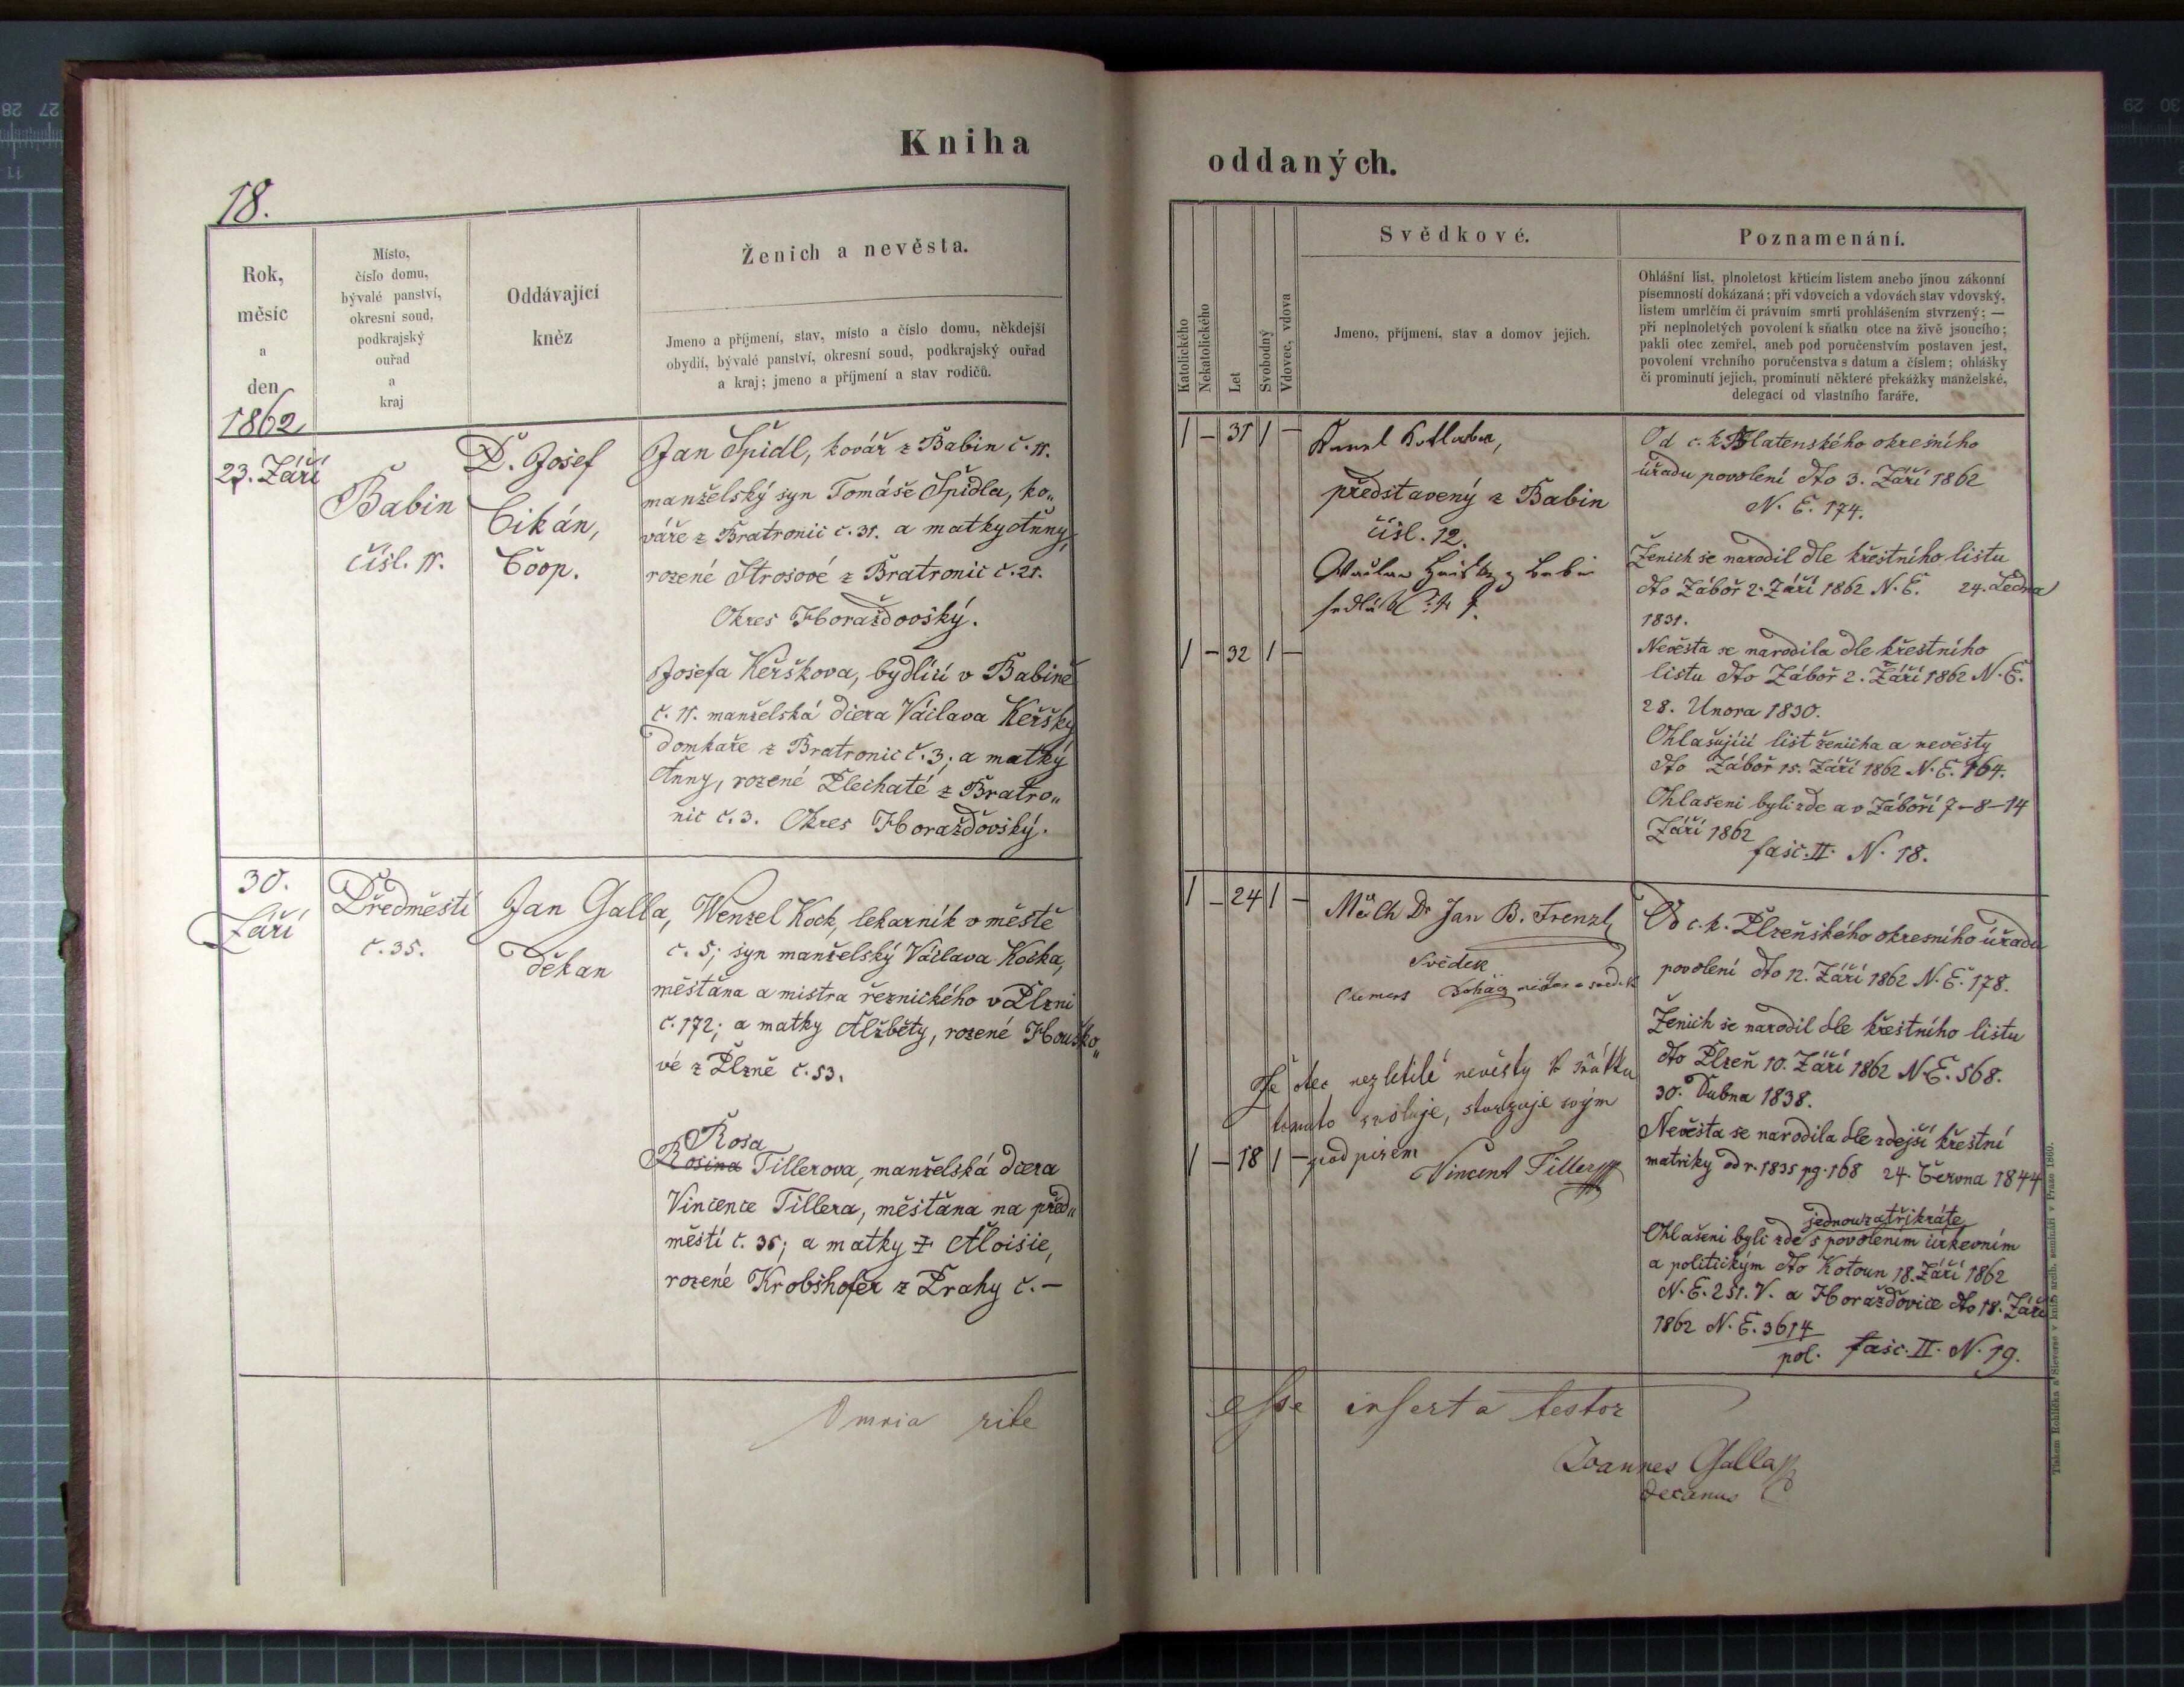 Kniha
18.
Rok,
měsíc
a
den
Místo,
číslo domu,
bývalé panství,
okresní soud,
podkrajský
ouřad
a
kraj
Oddávající
kněz
Ženich a nevěsta.
Jmeno a příjmení, stav, místo a číslo domu, někdejší
obydlí, bývalé panství, okresní soud, podkrajský ouřad
a kraj; jmeno a příjmení a stav rodičů.
1862
23. Září
Babin
čísl. 11.
P. Josef
Cikán,
Coop.
Jan Špidl, kovář z Babin č. 11.
manželský syn Tomáše Špidla, ko„
váře z Bratronic č. 31. a matky Anny,
rozené Strosové z Bratronic č. 21.
Okres Horažďovský.
Josefa Keřškova, bydlící v Babině
č. 11. manželská dcera Václava Keřšky
domkaře z Bratronic č. 3; a matky
Anny, rozené Plechaté z Bratro„
nic č. 3. Okres Horažďovský.
30.
Září
Předměstí
č. 35.
Jan Galla,
děkan
Wenzel Kock, lekarník v městě
č. 5; syn manželský Václava Kocka,
měšťana a mistra řeznického v Plzni
č. 172; a matky Alžběty, rozené Houško„
vé z Plzně č. 53.
Rosa
Rosina Tillerova, manželská dcera
Vincence Tillera, měšťana na před„
městí č. 35; a matky † Aloisie,
rozené Krobshofer z Prahy č. —
Omnia rite
oddaných.
Katolického
Nekatolického
Let
Svobodný
Vdovec, vdova
Svědkové.
Jmeno, příjmení, stav a domov jejich.
Poznamenání.
Ohlášní list, plnoletost křticím listem anebo jinou zákonní
písemností dokázaná; při vdovcích a vdovách stav vdovský,
listem umrlčím či právním smrti prohlášením stvrzený; —
při neplnoletých povolení k sňatku otce na živě jsoucího;
pakli otec zemřel, aneb pod poručenstvím postaven jest,
povolení vrchního poručenstva s datum a číslem; ohlášky
či prominutí jejich, prominutí některé překážky manželské,
delegací od vlastního faráře.
1 — 31 1 —
Kotlaba,
představený z Babin
čísl. 12.
1 — 32 1 —
Od c. k. Blatenského okresního
úřadu povolení dto 3. Září 1862
N. E. 174.
Ženich se narodil dle křestního listu
dto Zábоř 2. Září 1862 N. E. 24. Ledna
1831.
Nevěsta se narodila dle křestního
listu dto Záboř 2. Září 1862 N. E.
28. Unora 1830.
Ohlašující list ženicha a nevěsty
dto Záboř 15. Září 1862 N. E. 164.
Ohlašeni byli zde a v Záboří 7–8–14
Září 1862
fasc. II. N. 18.
1 — 24 1 —
Dr Jan B. Frenzl
Svědek
Clemens
Že otec nezletilé nevěsty k sňatku
tomuto svoluje, stvrzuje svým
1 — 18 1 — podpisem
Vincent Tiller
Od c. k. Plzeňského okresního úřadu
povolení dto 12. Září 1862 N. E. 178.
Ženich se narodil dle křestního listu
dto Plzeň 10. Září 1862 N. E. 568.
30. Dubna 1838.
Nevěsta se narodila dle zdejší křestní
matriky od r. 1835 pg. 168 24. Června 1844
jednouzatřikráte
Ohlašeni byli zde s povolením církevním
a politickým dto Kotoun 18. Září 1862
N. E. 251. V. a Horažďovice dto 18. Září
1862 N. E. 3614
pol. fasc. II. N. 19.
esse inserta testor
Joannes Galla
decanus